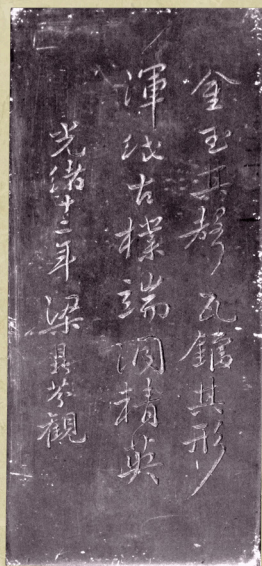 金玉其聲瓦鐺其形
渾純古樸端潤精英
光緒十二年梁鼎芬觀